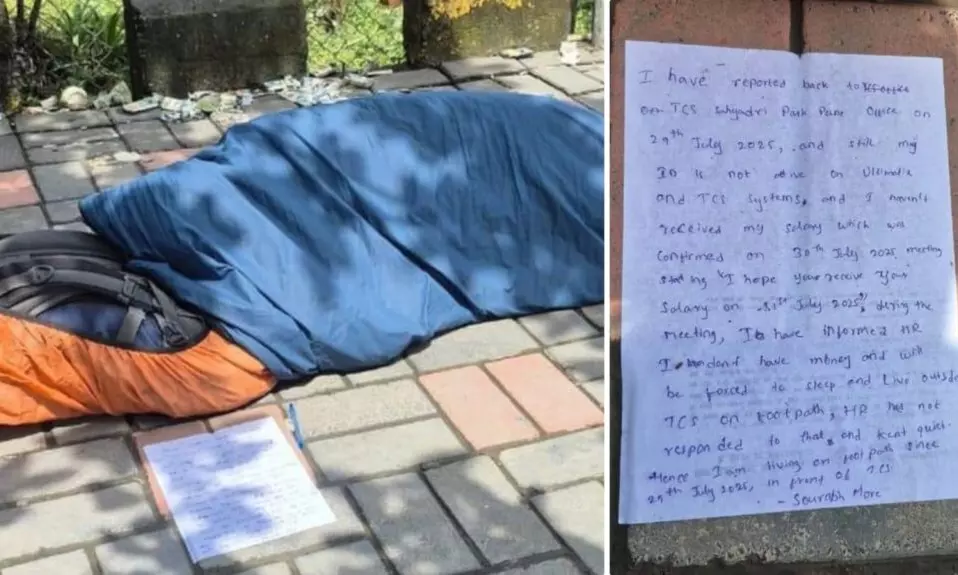 I have reported back to office
on TCS Sahyadri Park Pune Office on
29th July 2025, and still my
ID is not ative on Ultimatix
and TCS systems, and I haven't
received my salary which was
confirmed on 30th July 2025 meeting
stating "I hope your receive your
salary on 31st July 2025", dering the
meeting, I have informed HR
I don't have money and will
be forced to sleep and live outside
TCS on footpath, HR has not
responded to that, and kept quiet.
Hence I am living on footpath since
29th July 2025, in front of TCS
- Sourabh More